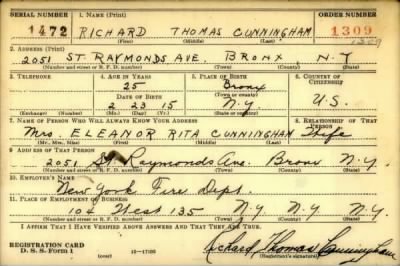 SERIAL NUMBER 1. Name (Print) ORDER NUMBER
1472 RICHARD THOMAS CUNNINGHAM 1309
(First) (Middle) (Last) 1309
2. Address (Print)
2051 ST. RAYMONDS AVE. BRONX N.Y
(Number and street or R. F. D. number) (Town) (County) (State)
3. Telephone 4. Age in Years 5. Place of Birth 6. Country of Citizenship
25 Bronx
Date of Birth (Town or county)
2 23 15 N.Y. U.S.
(Exchange) (Number) (Mo.) (Day) (Yr.) (State or country)
7. Name of Person Who Will Always Know Your Address 8. Relationship of That Person
Mrs. ELEANOR RITA CUNNINGHAM Wife
(Mr., Mrs., Miss) (First) (Middle) (Last)
9. Address of That Person
2051 St. Raymonds Ave. Bronx N.Y.
(Number and street or R. F. D. number) (Town) (County) (State)
10. Employer's Name
New York Fire Dept.
11. Place of Employment or Business
104 West 135 N.Y. N.Y. N.Y.
(Number and street or R. F. D. number) (Town) (County) (State)
I Affirm That I Have Verified Above Answers and That They Are True.
REGISTRATION CARD
D. S. S. Form 1 Richard Thomas Cunningham
(Registrant's signature)